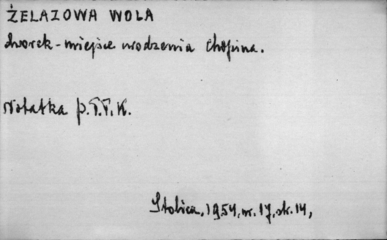 ŻELAZOWA WOLA
dworek - miejsce urodzenia Chopina.
Notatka p. T.T.K.
Stolica, 1954, nr. 17, str. 14,